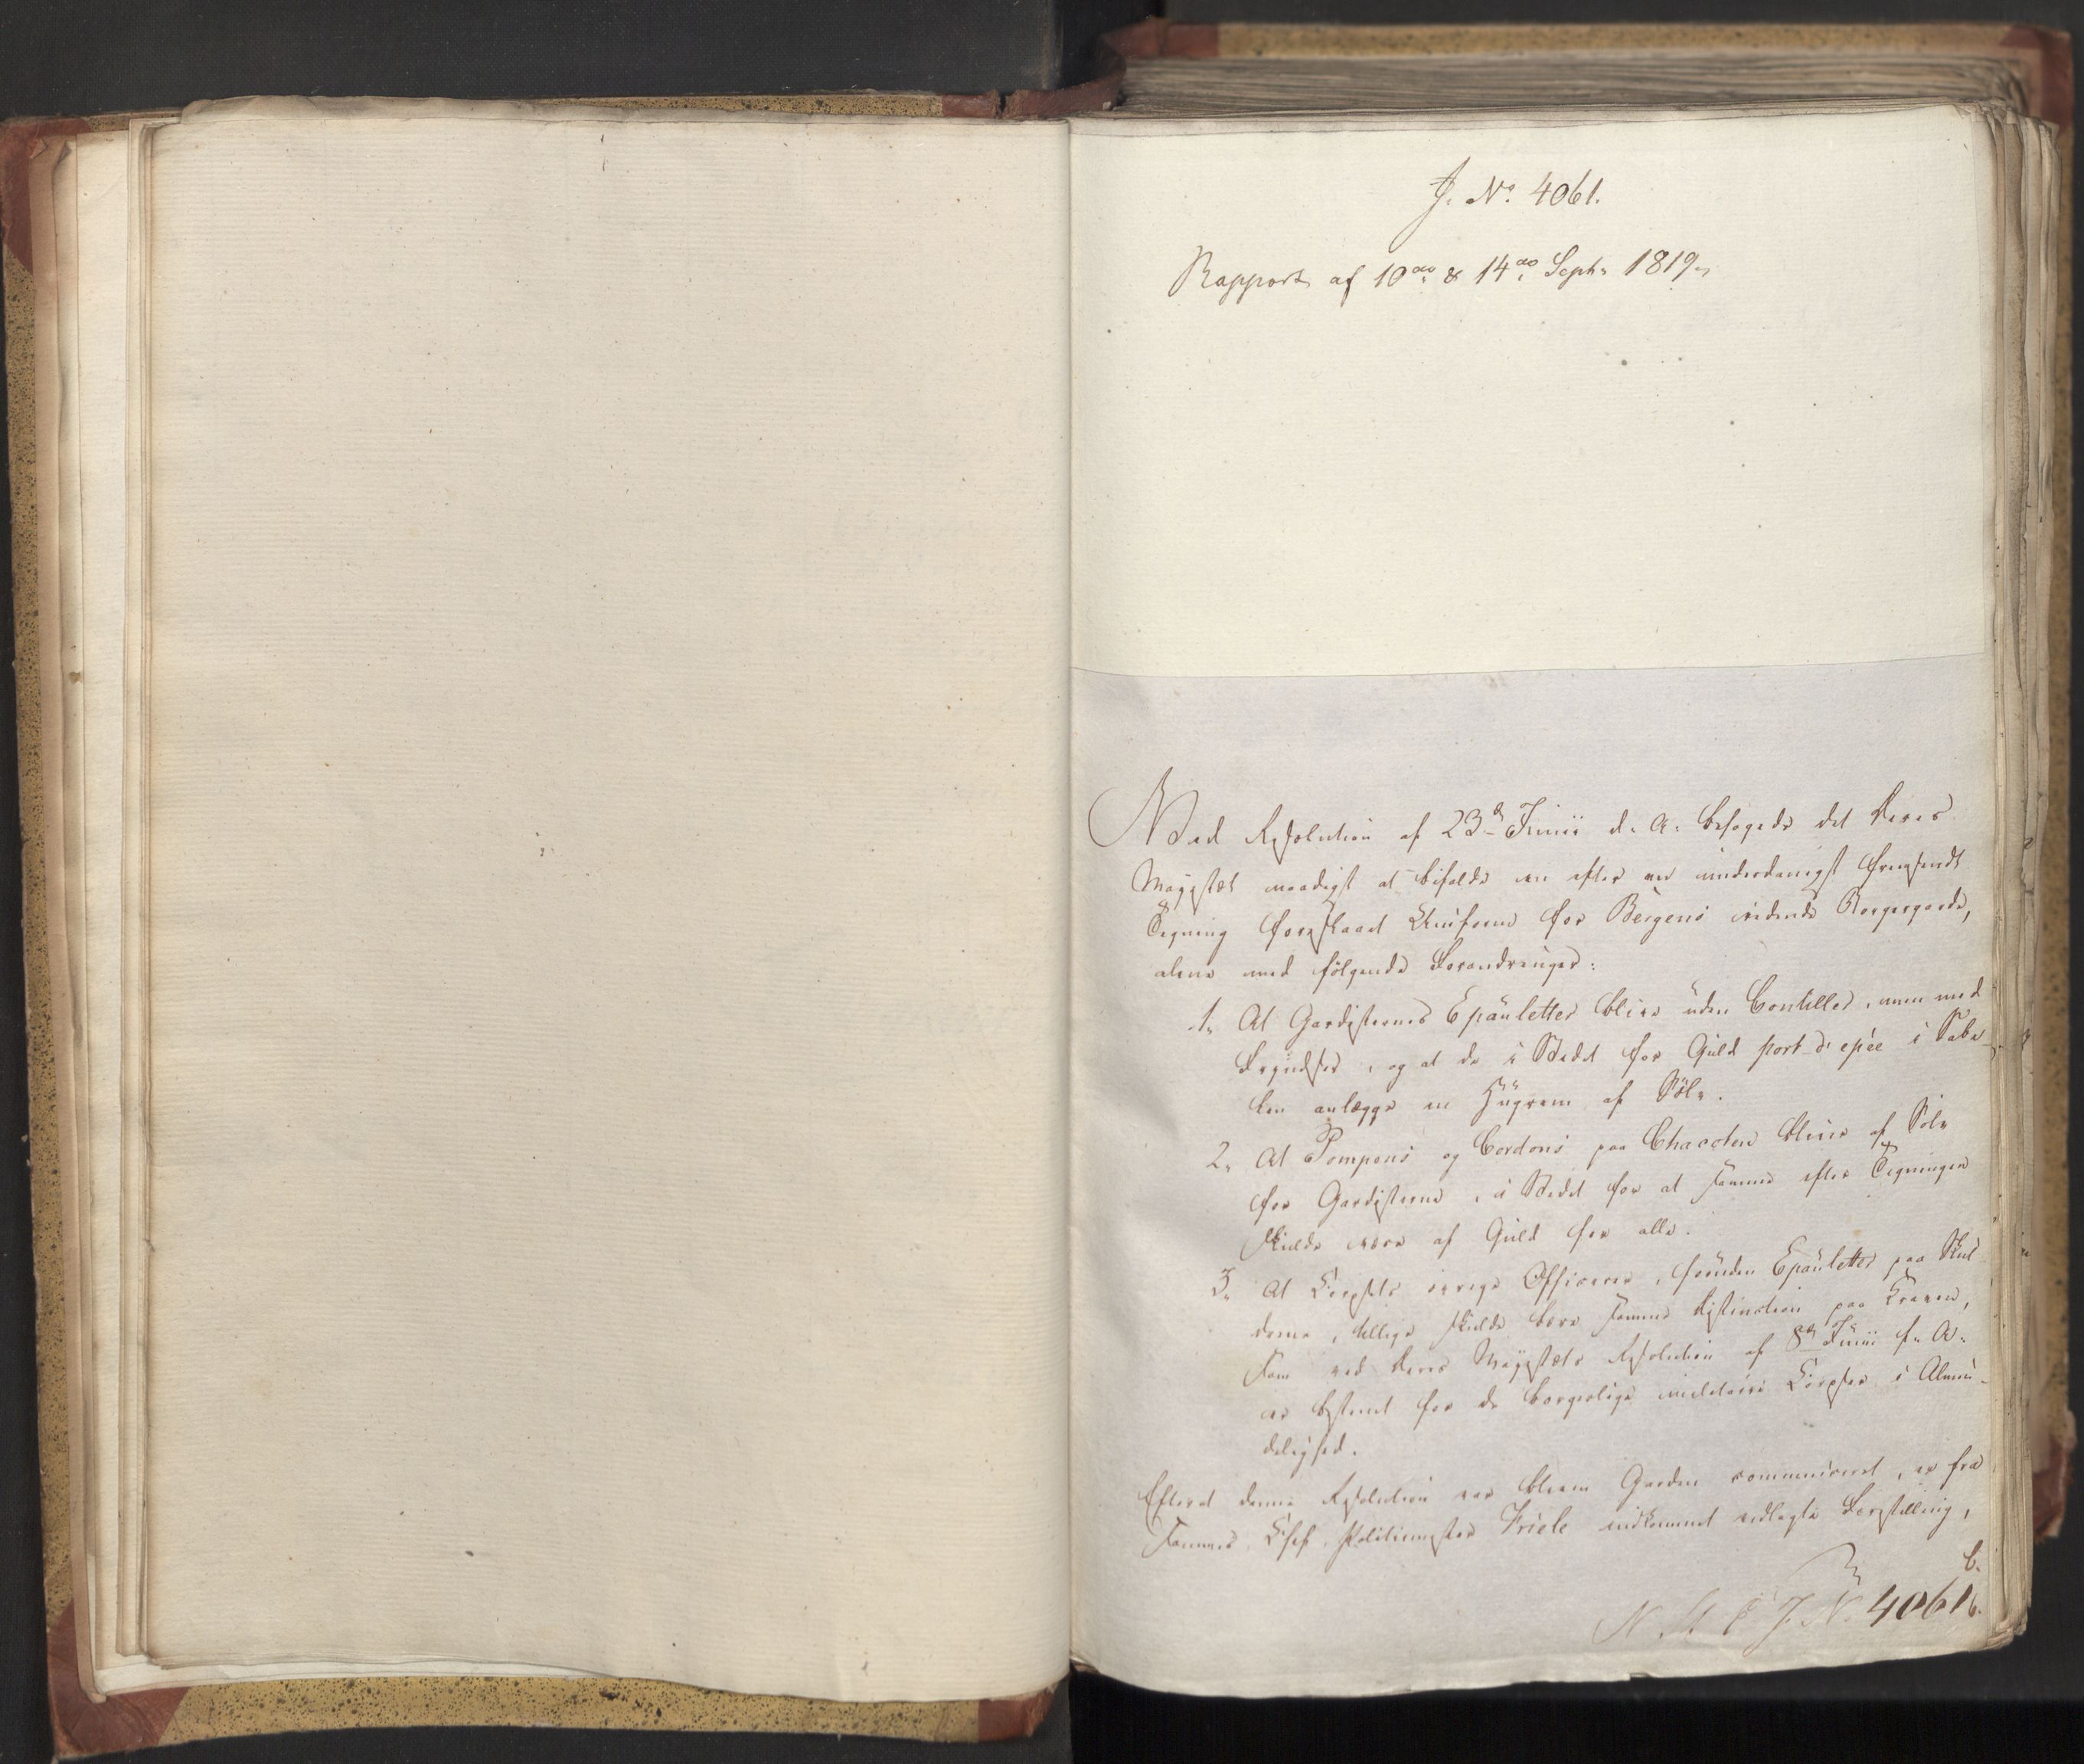 J. No. 4061.
Rapport af 10de & 14de Septr 1819.
Ved Resolution af 23d Junii d. A. behagede det Deres
Majestæt naadigst at bifalde en efter en underdanigst fremsendt
Tegning foreslaaet Uniform for Bergens ridende Borgergarde,
alene med følgende Forandringer:
1. At Gardisternes Epauletter blive uden Contiller, men med
Fryndser, og at de i Stedet for Guld port d'epée i Sabe-
len anlægge en Haandrem af Sølv.
2. At Pompons og Cordons paa Chacoten blive af Sølv
for Gardisterne, i Stedet for at samme efter Tegningen
skulde være af Guld for alle.
3. At Corpsets øvrige Officerer, foruden Epauletter paa Skul-
drene, tillige skulde bære samme Distinction paa Kraven,
som ved Deres Majestæts Resolution af 8d Junii f. A.
er bestemt for de borgerlige militaire Corpser i Almin-
delighed.
Efterat denne Resolution var bleven Garden communiceret, er fra
sammes Chef, Politiemester Friele indkommet vedlagte Forestilling,
b.
J. N. 4061 b.